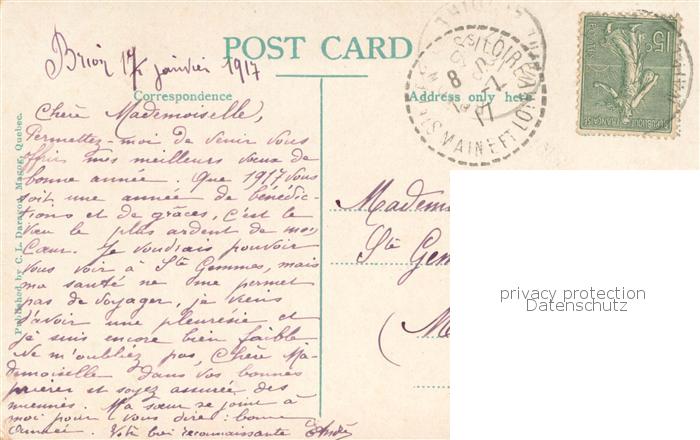 Brion 17 janvier 1917
POST CARD
Correspondence
Address only here
Chère Mademoiselle,
Permettez-moi de venir vous
offrir mes meilleurs vœux de
bonne année. Que 1917 vous
soit une année de bénédic-
tions et de grâces, c'est le
vœu le plus ardent de mon
Cœur. Je voudrais pouvoir
vous voir à Ste Gemmes, mais
ma santé ne me permet
pas de voyager, je viens
d'avoir une pleurésie et
je suis encore bien faible
Ne m'oubliez pas, Chère Ma-
demoiselle dans vos bonnes
prières et soyez assurée des
miennes. Ma sœur se joint à
moi pour vous dire: bonne
Année. Votre bien reconnaissante
Published by C. L. Magog, Quebec.
Madem
Ste Gem
(M
MAINE ET LOIRE
15c
POSTES
REPUBLIQUE FRANÇAISE
privacy protection
Datenschutz